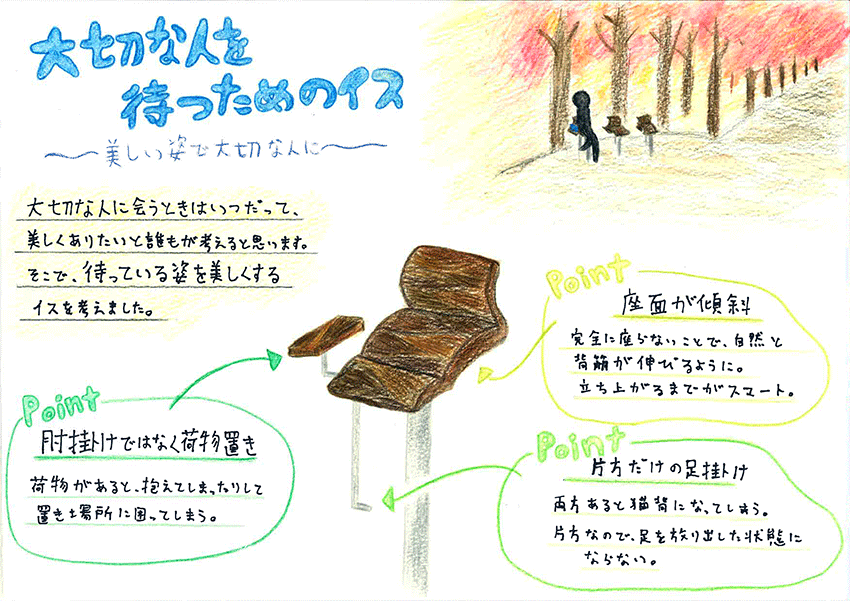 大切な人を
待つためのイス
～美しい姿で大切な人に～
大切な人に会うときはいつだって、
美しくありたいと誰もが考えると思います。
そこで、待っている姿を美しくする
イスを考えました。
Point
座面が傾斜
完全に座らないことで、自然と
背筋が伸びるように。
立ち上がるまでがスマート。
Point
肘掛けではなく荷物置き
荷物があると、抱えてしまったりして
置き場所に困ってしまう。
Point
片方だけの足掛け
両方あると猫背になってしまう。
片方なので、足を放り出した状態に
ならない。